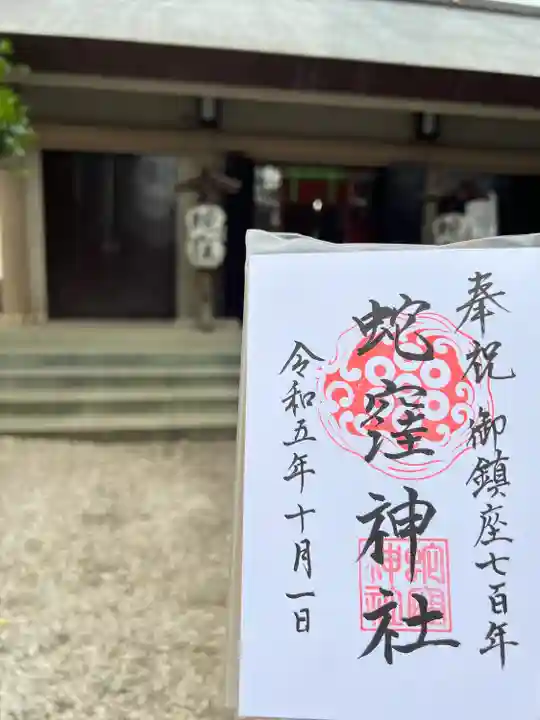 奉祝 御鎮座七百年
蛇窪神社
令和五年十月一日
蛇窪
神社